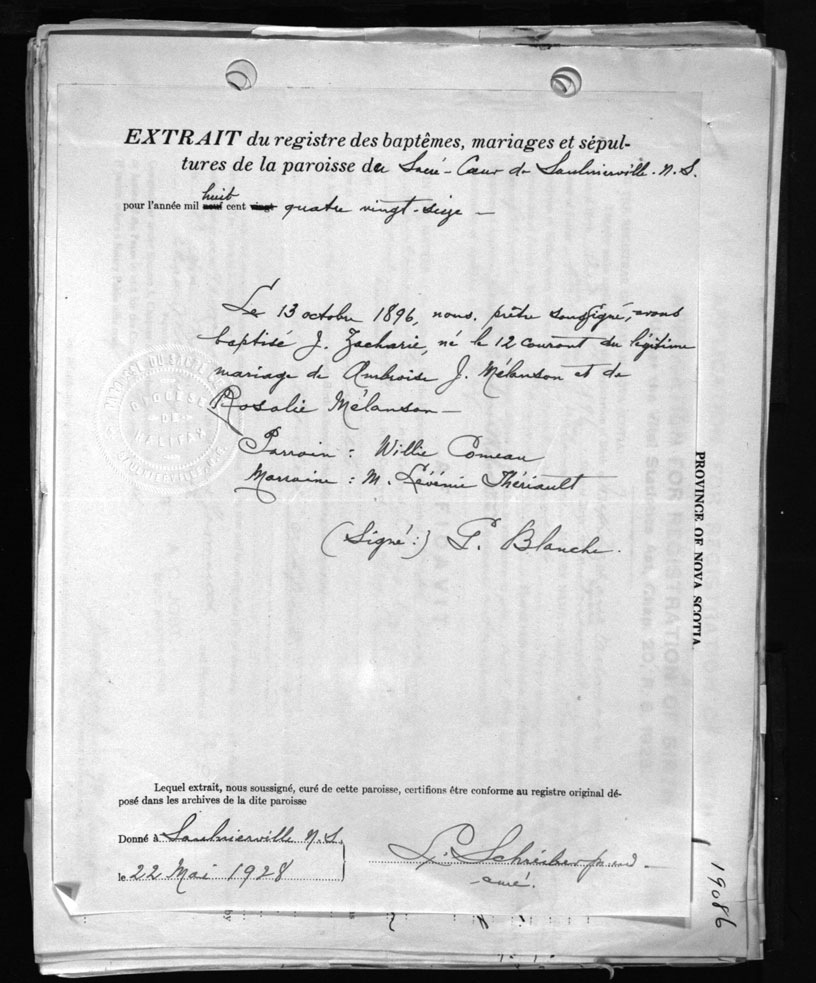 EXTRAIT du registre des baptêmes, mariages et sépul-
tures de la paroisse du Sacré-Cœur de Saulnierville. N.S.
huit
pour l'année mil neuf cent vingt quatre vingt-seize —
Le 13 octobre 1896, nous, prêtre soussigné, avons
baptisé J. Zacharie, né le 12 courant du légitime
mariage de Ambroise J. Mélanson et de
Rosalie Mélanson —
Parrain : Willie Comeau
Marraine : M. Lévenie Thériault
(Signé :) P. Blanche.
Lequel extrait, nous soussigné, curé de cette paroisse, certifions être conforme au registre original dé-
posé dans les archives de la dite paroisse
Donné à Saulnierville N.S.
le 22 Mai 1928
curé.
PROVINCE OF NOVA SCOTIA
19086
DIOCESE
DE
HALIFAX